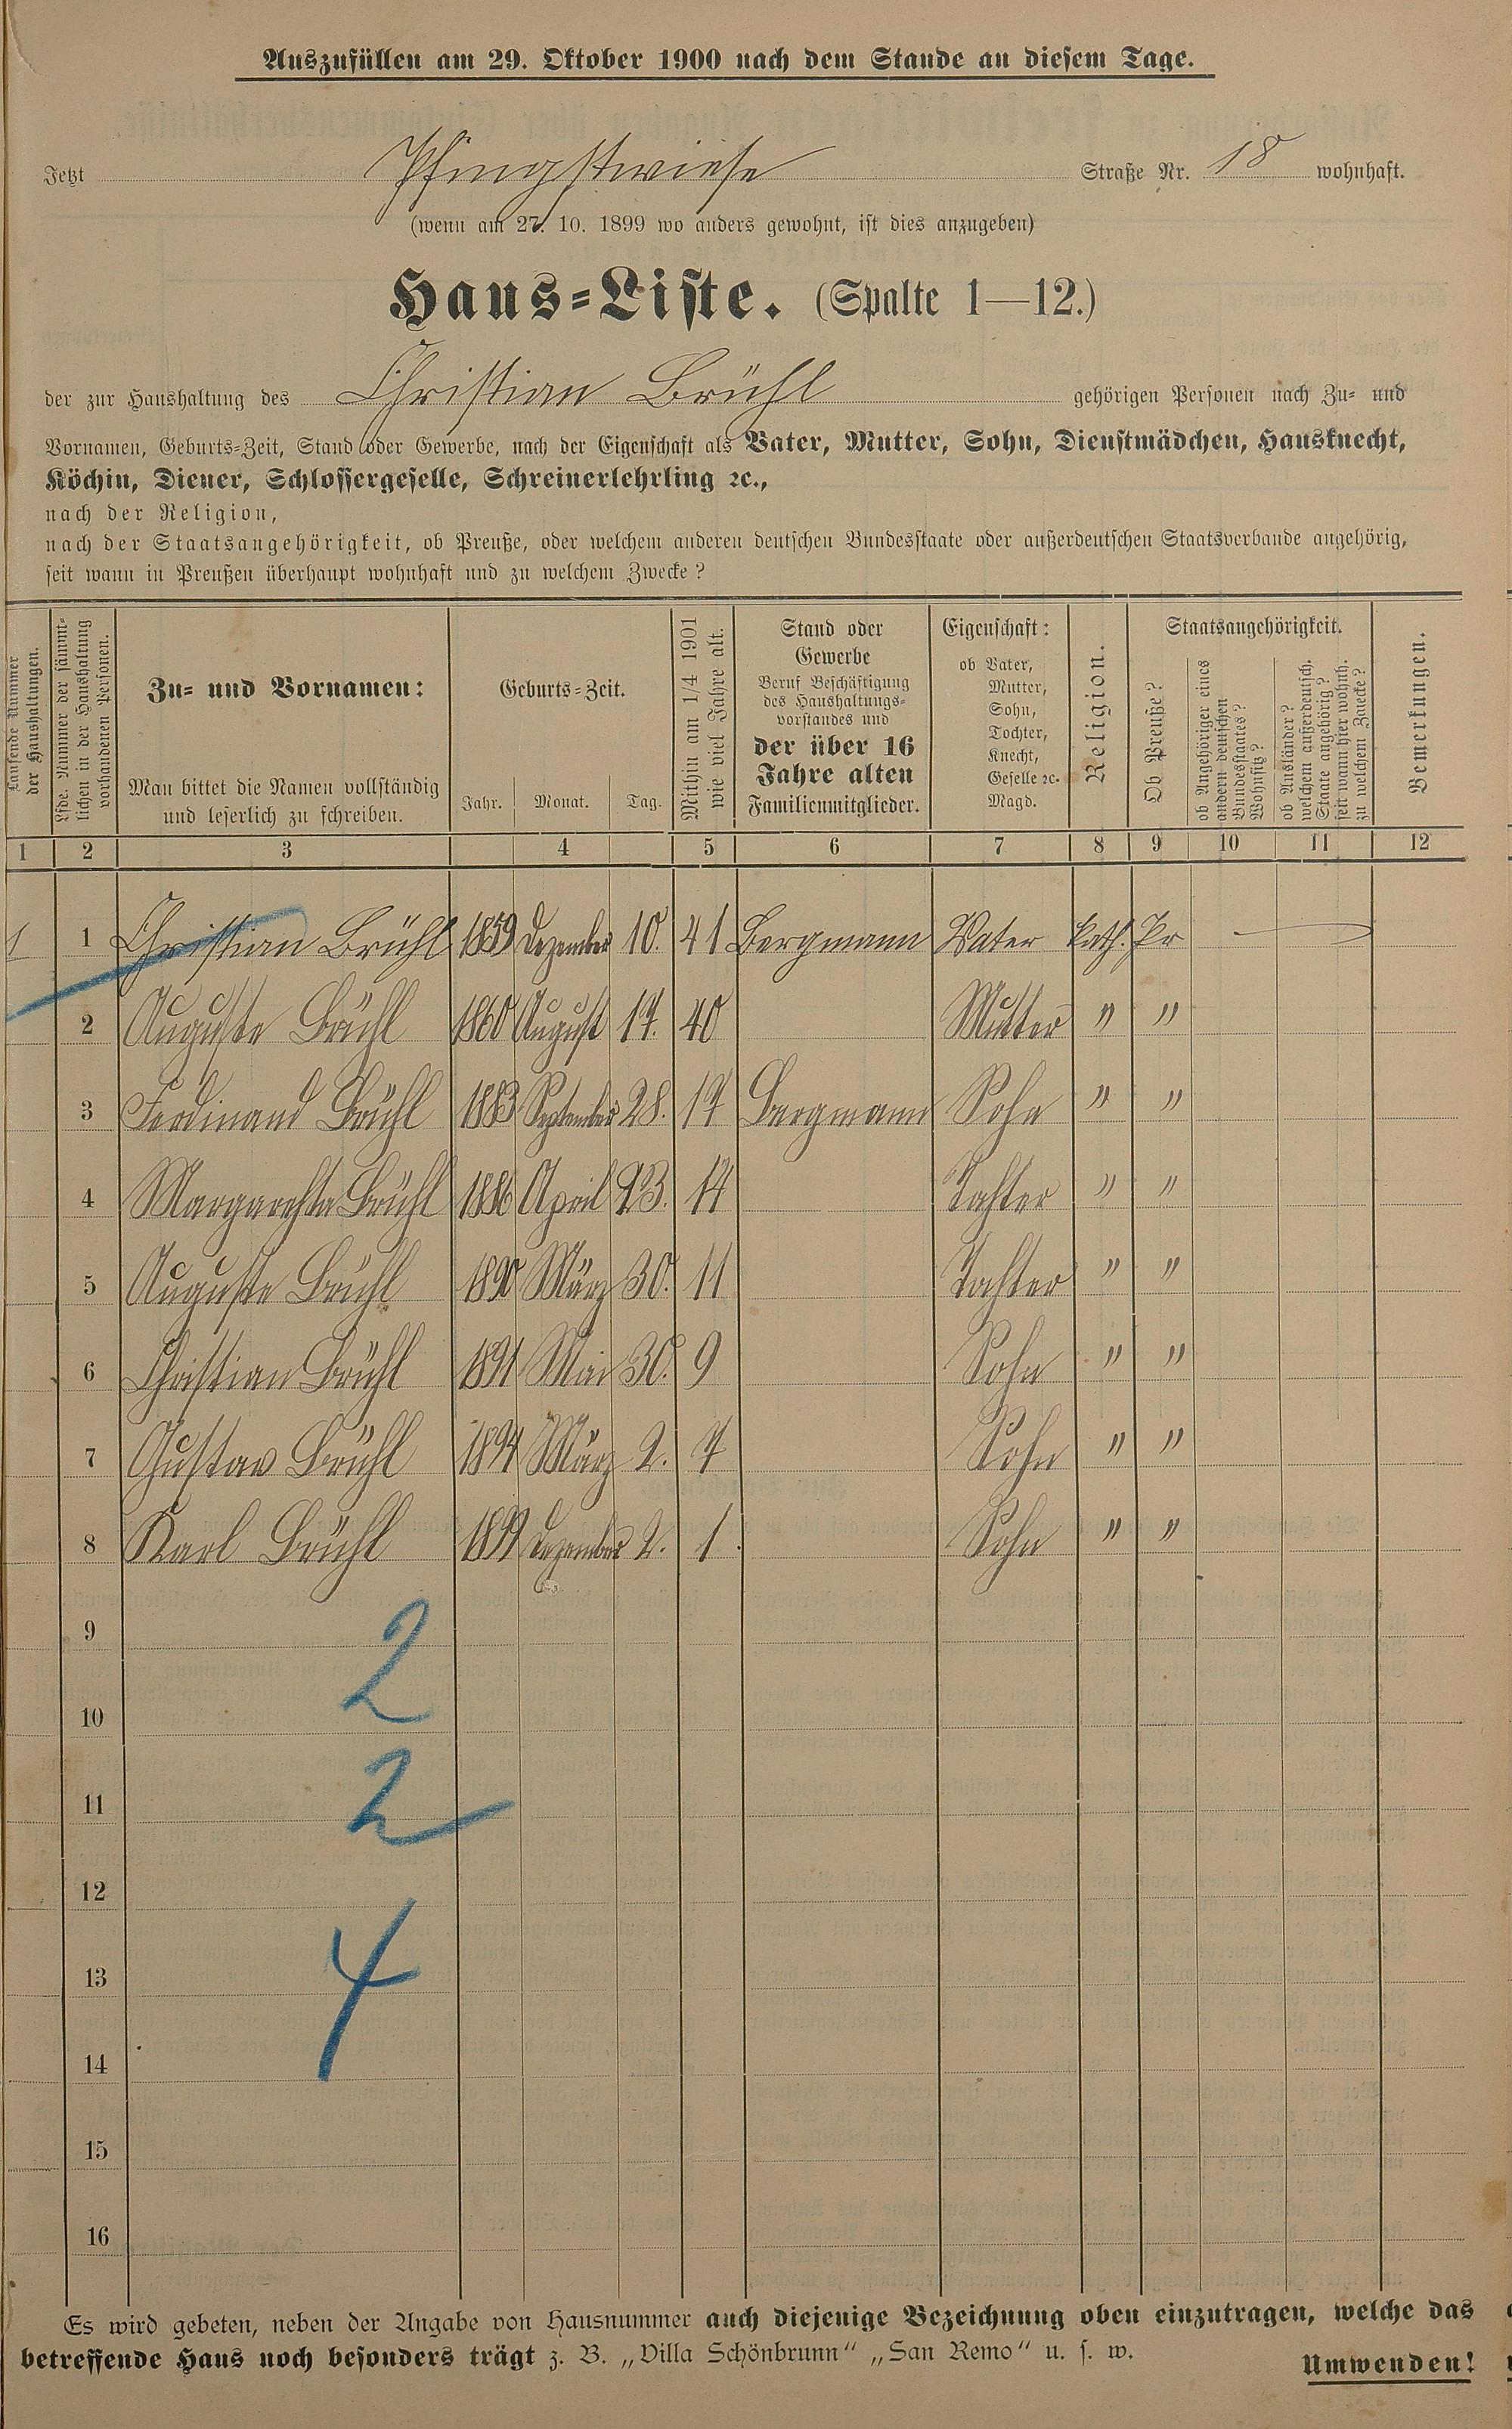 Auszufüllen am 29. Oktober 1900 nach dem Stande an diesem Tage.
Jetzt Pfingstwiese Straße Nr. 18 wohnhaft.
(wenn am 27. 10. 1899 wo anders gewohnt, ist dies anzugeben)
Haus-Liste. (Spalte 1—12.)
der zur Haushaltung des Christian Brühl gehörigen Personen nach Zu- und
Vornamen, Geburts-Zeit, Stand oder Gewerbe, nach der Eigenschaft als Vater, Mutter, Sohn, Dienstmädchen, Hausknecht,
Köchin, Diener, Schlossergeselle, Schreinerlehrling ꝛc.,
nach der Religion,
nach der Staatsangehörigkeit, ob Preuße, oder welchem anderen deutschen Bundesstaate oder außerdeutschen Staatsverbande angehörig,
seit wann in Preußen überhaupt wohnhaft und zu welchem Zwecke?
Laufende Nummer
der Haushaltungen.
Lfde. Nummer der sämmt-
lichen in der Haushaltung
vorhandenen Personen.
Zu- und Vornamen:
Man bittet die Namen vollständig
und leserlich zu schreiben.
Geburts-Zeit.
Jahr. Monat. Tag.
Mithin am 1/4 1901
wie viel Jahre alt.
Stand oder
Gewerbe
Beruf Beschäftigung
des Haushaltungs-
vorstandes und
der über 16
Jahre alten
Familienmitglieder.
Eigenschaft:
ob Vater,
Mutter,
Sohn,
Tochter,
Knecht,
Geselle ꝛc.
Magd.
Religion.
Staatsangehörigkeit.
Ob Preuße?
ob Angehöriger eines
andern deutschen
Bundesstaates?
Wohnsitz?
ob Ausländer?
welchem außerdeutsch.
Staate angehörig?
seit wann hier wohnh.
zu welchem Zwecke?
Bemerkungen.
1 2 3 4 5 6 7 8 9 10 11 12
1 1 Christian Brühl 1859 Dezember 10. 41 Bergmann Vater kath. Pr
2 Auguste Brühl 1860 August 17. 40 Mutter " "
3 Ferdinand Brühl 1883 September 28. 17 Bergmann Sohn " "
4 Margarehta Brühl 1886 April 23. 14 Tahter " "
5 Auguste Brühl 1890 März 30. 11 Tahter " "
6 Christian Brühl 1891 Mai 30. 9 Sohn " "
7 Gustav Brühl 1894 März 2. 7 Sohn " "
8 Karl Brühl 1899 Dezember 2. 1 Sohn " "
9
2
10
11
2
12
13
4
14
15
16
Es wird gebeten, neben der Angabe von Hausnummer auch diejenige Bezeichnung oben einzutragen, welche das
betreffende Haus noch besonders trägt z. B. „Villa Schönbrunn“ „San Remo“ u. s. w.
Umwenden!